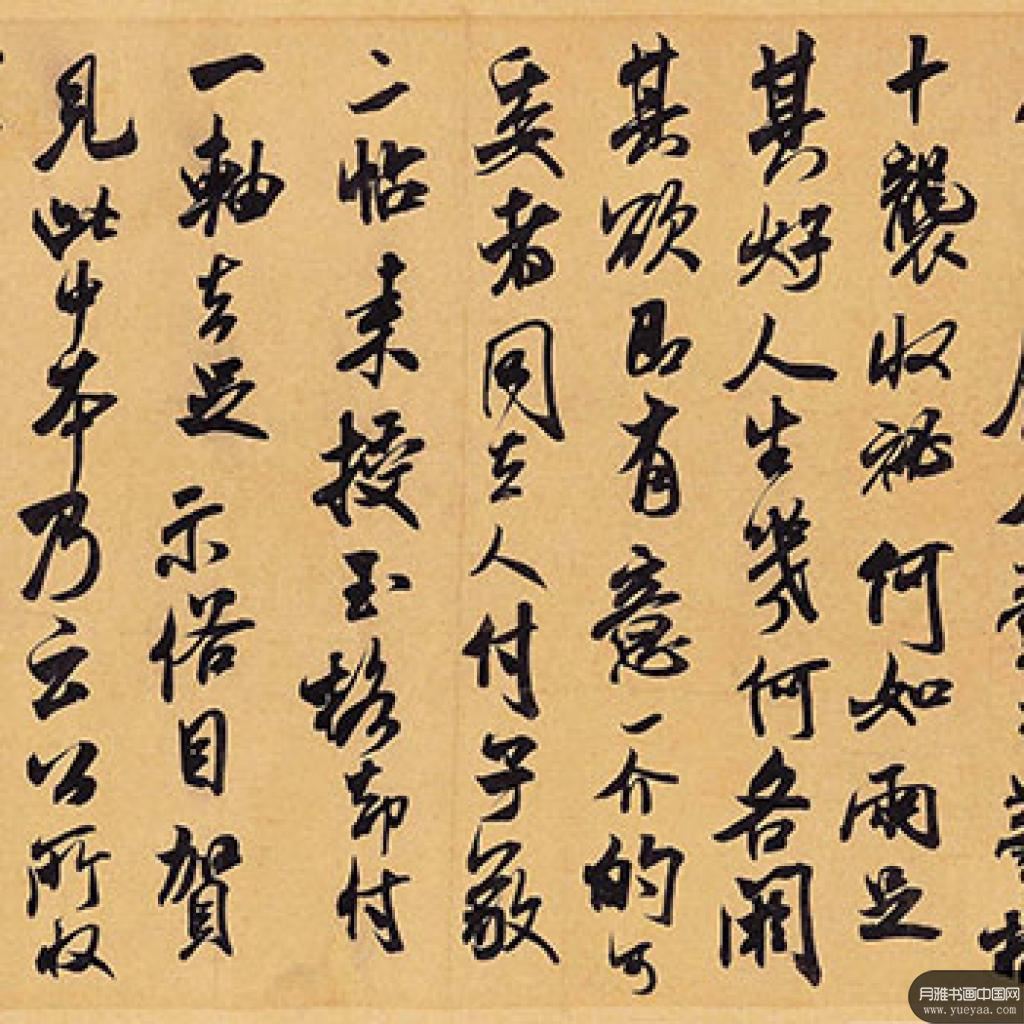 十襲收祕何如兩足
其好人生幾何各閼
其欲即有意一介的可
委者同去人付子敬
二帖来授玉格却付
一軸去足示俗目賀
見此中本乃云公所收
月雅书画中国网
www.yueyaa.com